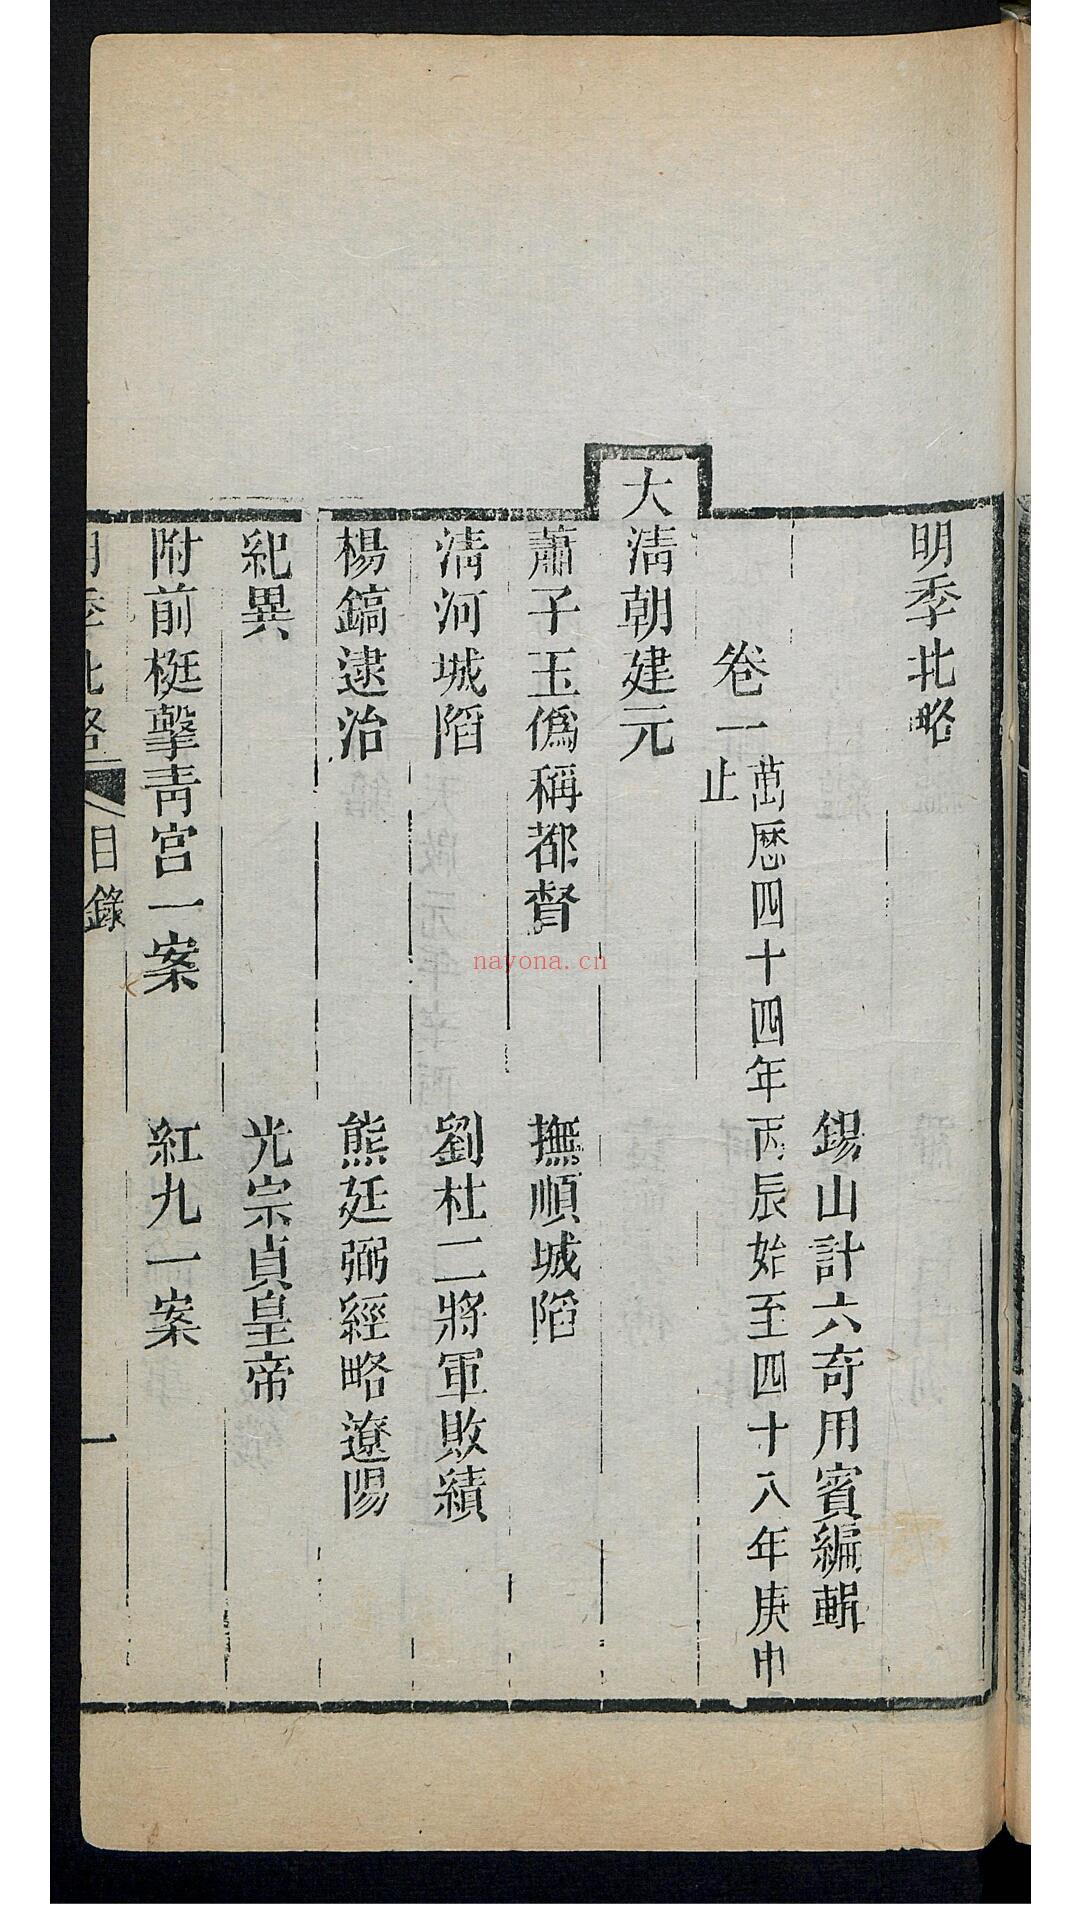 明季北略
錫山計六奇用賓編輯
卷一
萬曆四十四年丙辰始至四十八年庚申
止
大清朝建元
蕭子玉僞稱都督
撫順城陷
淸河城陷
劉杜二將軍敗績
楊鎬逮治
熊廷弼經略遼陽
紀異
光宗貞皇帝
附前梃擊靑宮一案
紅九一案
明季北略
目錄
一
nayona.cn